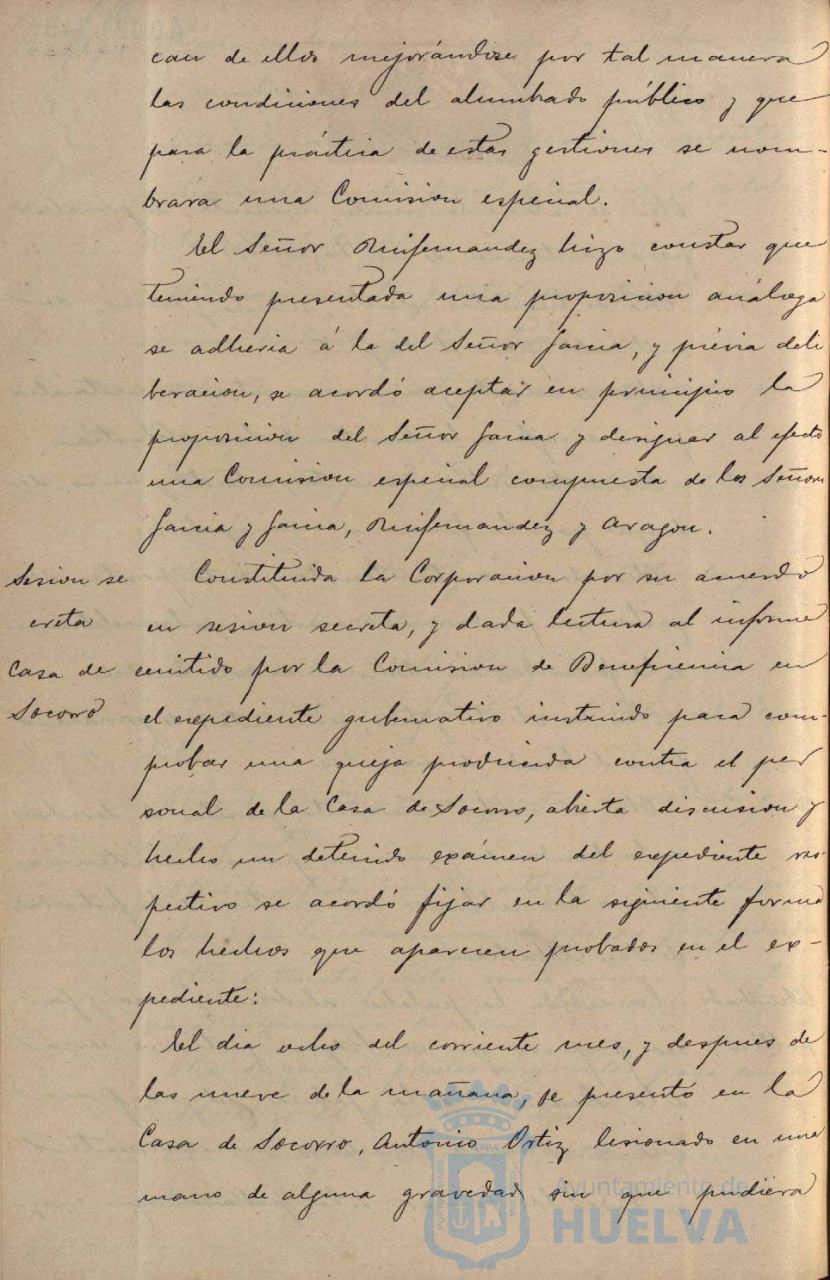 can de ellos mejorándose por tal manera
las condiciones del alumbrado público y que
para la práctica de estas gestiones se nom-
brara una Comision especial.
El Señor Ruifernandez hizo constar que
teniendo presentada una proposicion análoga
se adheria á la del Señor Garcia, y prévia deli
beracion, se acordó aceptar en principio la
proposicion del Señor Garcia y designar al efecto
una Comision especial compuesta de los Señores
Garcia y Garcia, Ruifernandez y Aragon.
Sesion se
creta
Casa de
Socorro
Constituida la Corporacion por su acuerdo
en sesion secreta, y dada lectura al informe
emitido por la Comision de Beneficencia en
el expediente gubernativo instruido para com-
probar una queja producida contra el per
sonal de la Casa de Socorro, abierta discusion y
hecho un detenido exámen del expediente res
pectivo se acordó fijar en la siguiente forma
los hechos que aparecen probados en el ex-
pediente:
El dia ocho del corriente mes, y despues de
las nueve de la mañana, se presentó en la
Casa de Socorro, Antonio Ortiz lesionado en una
mano de alguna gravedad sin que pudiera
Ayuntamiento de
HUELVA